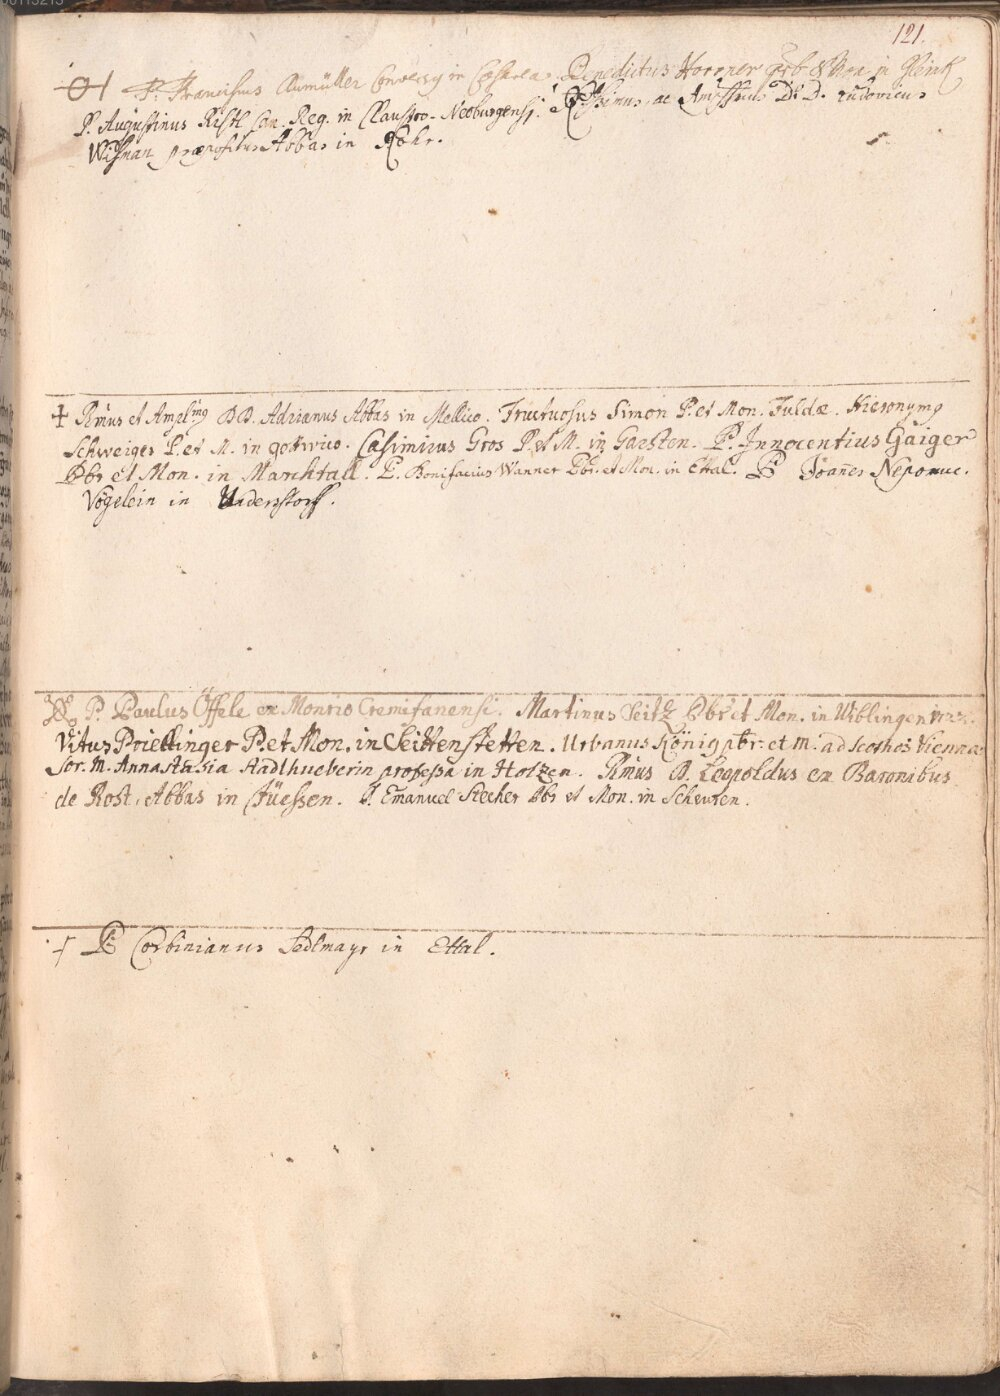 121.
P. Franciscus Aumüller Conversg in . Benedictus Horner et Mon. in Gleink
P. Augustinus Ristl Can. Reg. in Claustro-Neoburgensi. ac D. D. Ludovicus
Wisman præpositus Abbas in Rohr.
+ Rmus et Ampl:mg DD. Adrianus Abbas in Mellico. Fructuosus Simon P. et Mon. Fuldæ. Hieronymg
Schweiger P. et M. in gottwico. Casimirus Gros P. et M. in Garsten. P. Innocentius Gaiger
Pbr et Mon. in Marchtall. P. Bonifacius Wanner Pbr. et Mon. in Ettal. P Joanes Nepomuc.
Vögelein in Understorff.
P. Paulus Öffele ex Monrio Cremifanensi. Martinus Seitz Pbr et Mon. in Wiblingen
Vitus Priellinger P. et Mon. in Seittenstetten. Urbanus König pbr. et m. ad scothos Viennæ
Sor. M. Annastasia Stadlhueberin professa in Holzen. Rmus D. Leopoldus ex Baronibus
de Rost, Abbas in Füessen. P. Emanuel Stecher Pbr et Mon. in Scheuren.
+ P Corbinianus Sedlmayr in Ettal.